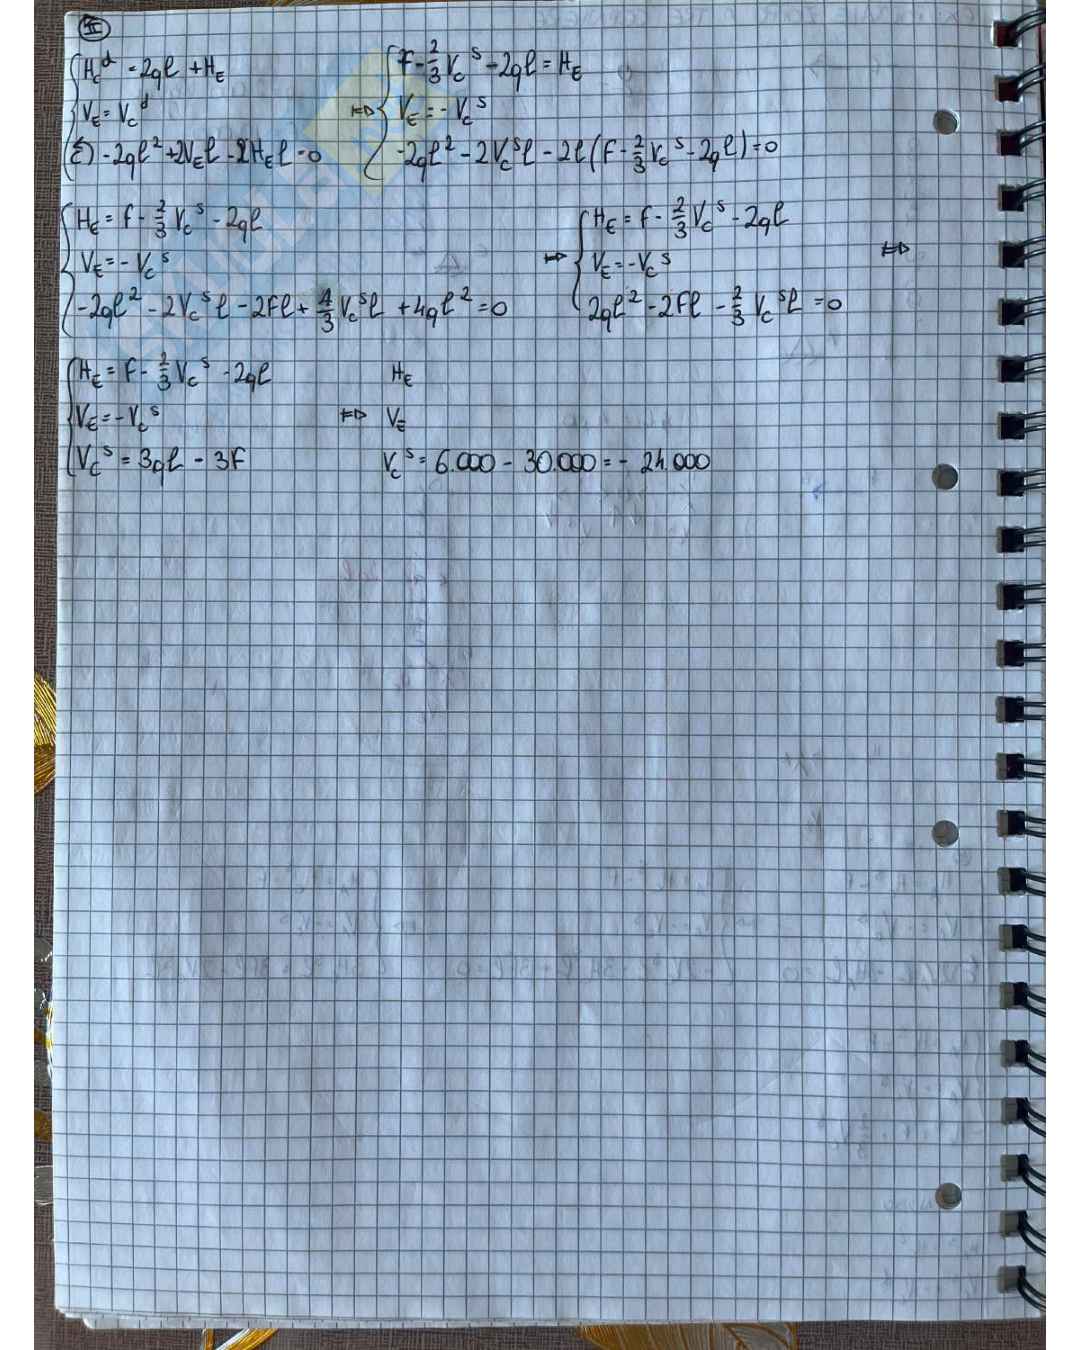 II
H_c^d - 2ql + H_E
V_E = V_c^d
C) - 2ql² + 2V_E l - 2H_E l = 0
⇔
F - 2/3 V_c^s - 2ql = H_E
V_E = - V_c^s
-2ql² - 2V_c^s l - 2l (F - 2/3 V_c^s - 2ql) = 0
H_E = F - 2/3 V_c^s - 2ql
V_E = - V_c^s
-2ql² - 2V_c^s l - 2Fl + 4/3 V_c^s l + 4ql² = 0
⇔
H_E = F - 2/3 V_c^s - 2ql
V_E = - V_c^s
2ql² - 2Fl - 2/3 V_c^s l = 0
⇔
H_E = F - 2/3 V_c^s - 2ql
V_E = - V_c^s
V_c^s = 3ql - 3F
⇔
H_E
V_E
V_c^s = 6.000 - 30.000 = - 24.000